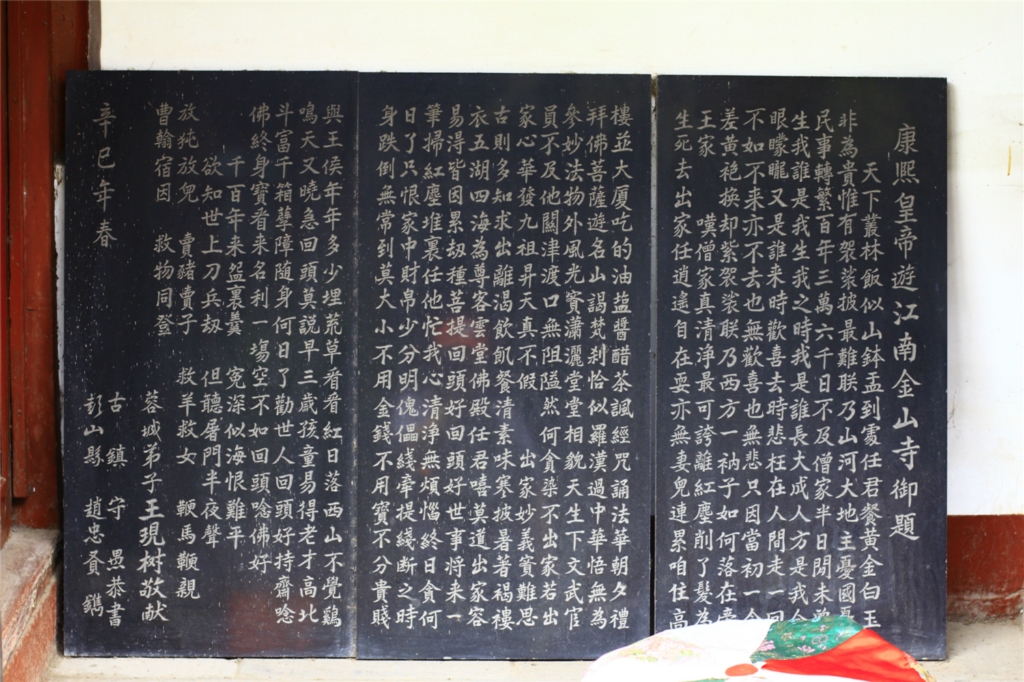 康熙皇帝遊江南金山寺御題
天下叢林飯似山鉢盂到處任君餐黃金白玉
非為貴惟有袈裟披最難朕乃山河大地主憂國憂
民事轉繁百年三萬六千日不及僧家半日閒未曾
生我誰是我生我之時我是誰長大成人方是我合
眼朦朧又是誰来時歡喜去時悲枉在人間走一回
不如不来亦不去也無歡喜也無悲只因當初一念
差黃袍换却紫袈裟朕乃西方一衲子如何落在帝
王家 嘆僧家真清淨最可誇離紅塵削了髮為
生死去出家任逍遙自在耍亦無妻兒連累咱住高
樓並大厦吃的油盐醬醋茶諷經咒誦法華朝夕禮
拜佛菩薩遊名山謁梵刹恰似羅漢過中華悟無為
參妙法物外風光實瀟灑堂堂相貌天生下文武官
員不及他關津渡口無阻隘然何貪染不出家若出
家心華發九祖昇天真不假 出家妙義實難思
古則多知求出離渴飲飢餐清素味寒披暑著褐褸
衣五湖四海為尊客雲堂佛殿任君嘻莫道出家容
易得皆因累劫種菩提回頭好回頭好世事將来一
筆掃紅塵堆裏任他忙我心清淨無煩惱終日貪何
日了只恨家中財帛少分明傀儡綫牽提綫断之時
身跌倒無常到莫大小不用金錢不用寶不分貴賤
與王侯年年多少埋荒草看看紅日落西山不覺鷄
鳴天又曉急回頭莫説早三歲孩童易得老才高北
斗富千箱孽障随身何日了勸世人回頭好持齋唸
佛終身寶看来名利一場空不如回頭唸佛好
千百年来盌裏羹 寃深似海恨難平
欲知世上刀兵劫 但聽屠門半夜聲
放純放兒 賣豬賣子 救羊救女 鞭馬鞭親
曹翰宿因 救物同登
蓉城弟子王現树敬献
古鎮 守愚恭書
辛巳年春 彭山縣 趙忠貴鐫